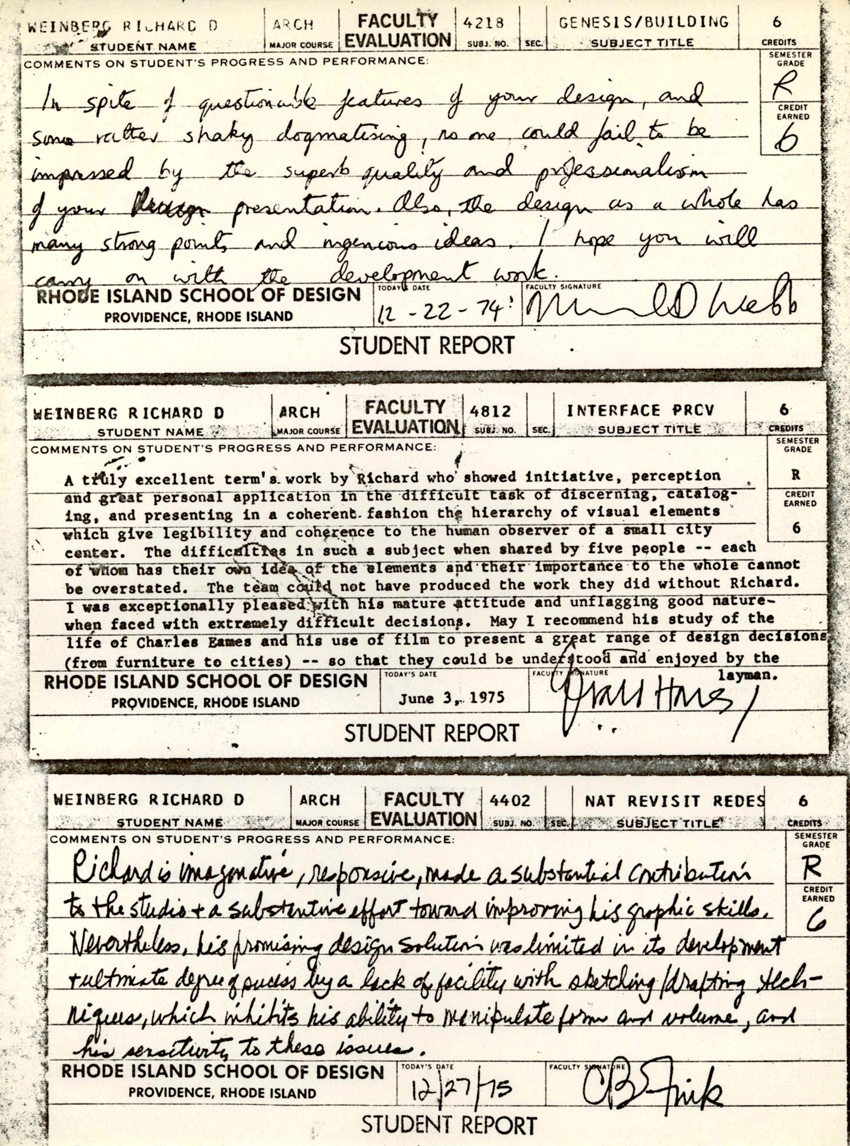 WEINBERG RICHARD D ARCH FACULTY EVALUATION 4218 GENESIS/BUILDING 6
STUDENT NAME MAJOR COURSE SUBJ. NO. SEC. SUBJECT TITLE CREDITS
COMMENTS ON STUDENT'S PROGRESS AND PERFORMANCE: SEMESTER GRADE
R
CREDIT EARNED
6
In spite of questionable features of your design, and
some rather shaky dogmatising, no one could fail to be
impressed by the superb quality and professionalism
of your presentation. Also, the design as a whole has
many strong points and ingenious ideas. I hope you will
carry on with the development work.
RHODE ISLAND SCHOOL OF DESIGN TODAY'S DATE FACULTY SIGNATURE
PROVIDENCE, RHODE ISLAND 12-22-74 D Webb
STUDENT REPORT
WEINBERG RICHARD D ARCH FACULTY EVALUATION 4812 INTERFACE PRCV 6
STUDENT NAME MAJOR COURSE SUBJ. NO. SEC. SUBJECT TITLE CREDITS
COMMENTS ON STUDENT'S PROGRESS AND PERFORMANCE: SEMESTER GRADE
R
CREDIT EARNED
6
A truly excellent term's work by Richard who showed initiative, perception
and great personal application in the difficult task of discerning, catalog-
ing, and presenting in a coherent fashion the hierarchy of visual elements
which give legibility and coherence to the human observer of a small city
center. The difficulties in such a subject when shared by five people -- each
of whom has their own idea of the elements and their importance to the whole cannot
be overstated. The team could not have produced the work they did without Richard.
I was exceptionally pleased with his mature attitude and unflagging good nature-
when faced with extremely difficult decisions. May I recommend his study of the
life of Charles Eames and his use of film to present a great range of design decisions
(from furniture to cities) -- so that they could be understood and enjoyed by the
layman.
RHODE ISLAND SCHOOL OF DESIGN TODAY'S DATE FACULTY SIGNATURE
PROVIDENCE, RHODE ISLAND June 3, 1975
STUDENT REPORT
WEINBERG RICHARD D ARCH FACULTY EVALUATION 4402 NAT REVISIT REDES 6
STUDENT NAME MAJOR COURSE SUBJ. NO. SEC. SUBJECT TITLE CREDITS
COMMENTS ON STUDENT'S PROGRESS AND PERFORMANCE: SEMESTER GRADE
R
CREDIT EARNED
6
Richard is imaginative, responsive, made a substantial contribution
to the studio + a substantive effort toward improving his graphic skills.
Nevertheless, his promising design solution was limited in its development
+ ultimate degree of sucess by a lack of facility with sketching/drafting tech-
niques, which inhibits his ability to manipulate form and volume, and
his sensitivity to these issues.
RHODE ISLAND SCHOOL OF DESIGN TODAY'S DATE FACULTY SIGNATURE
PROVIDENCE, RHODE ISLAND 12/27/75 CB Fink
STUDENT REPORT